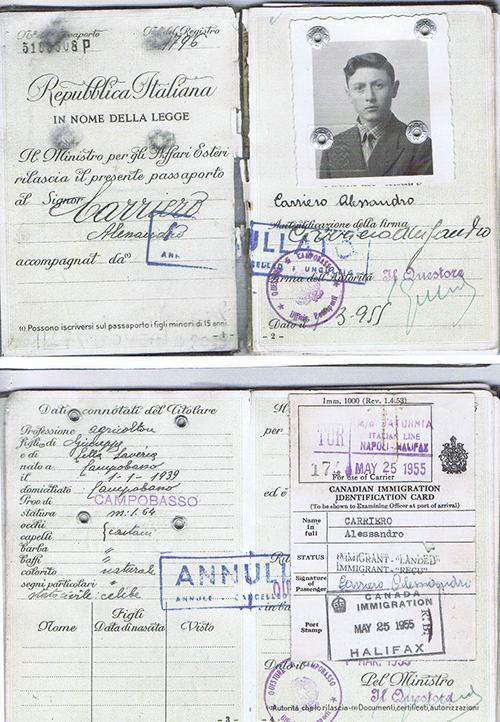 5189308 P
1796
Repubblica Italiana
IN NOME DELLA LEGGE
Il Ministro per gli Affari Esteri
rilascia il presente passaporto
al Signor Carriero
Alessandro
accompagnat da(1)
(1) Possono iscriversi sul passaporto i figli minori di 15 anni.
- 1 -
Carriero Alessandro
Autentificazione della firma
Carriero Alessandro
Firma dell'Autorità Il Questore
QUESTURA DI CAMPOBASSO
Dato il 3-955
- 2 -
Dati e connotati del Titolare
Professione agricoltore
figlio di Giuseppe
e di
nato a Campobasso
il 1-1-1939
domiciliato Campobasso
Prov. di CAMPOBASSO
statura m. 1.64
occhi
capelli castani
barba "
baffi "
colorito naturale
segni particolari "
Stato civile: celibe
Figli
Nome Data di nascita Visto
- 3 -
ANNULL
ANNULE - CANCELLED
Imm. 1000 (Rev. 1.4.53)
M/N SATURNIA
ITALIAN LINE
NAPOLI - HALIFAX
TUR
17/ MAY 25 1955
For use of Carrier
CANADIAN IMMIGRATION
IDENTIFICATION CARD
(To be shown to Examining Officer at port of arrival)
Name in full CARRIERO
Alessandro
STATUS IMMIGRANT-"LANDED"
IMMIGRANT-"REÇU"
Signature of Passenger Carriero Alessandro
Port Stamp
CANADA
IMMIGRATION
MAY 25 1955
HALIFAX
Dato il 1955
Pel Ministro
Il Questore
QUESTURA DI CAMPOBASSO
Autorità che lo rilascia - (2) Documenti, certificati, autorizzazioni
- 4 -